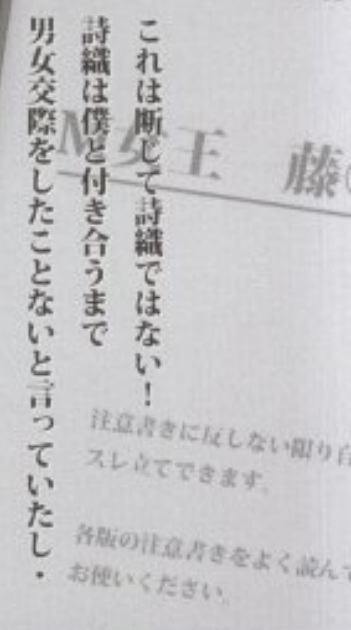 これは断じて詩織ではない！
詩織は僕と付き合うまで
男女交際をしたことないと言っていたし・
M女王 藤
注意書きに反しない限り自
スレ立てできます。
各版の注意書きをよく読んで
お使いください。